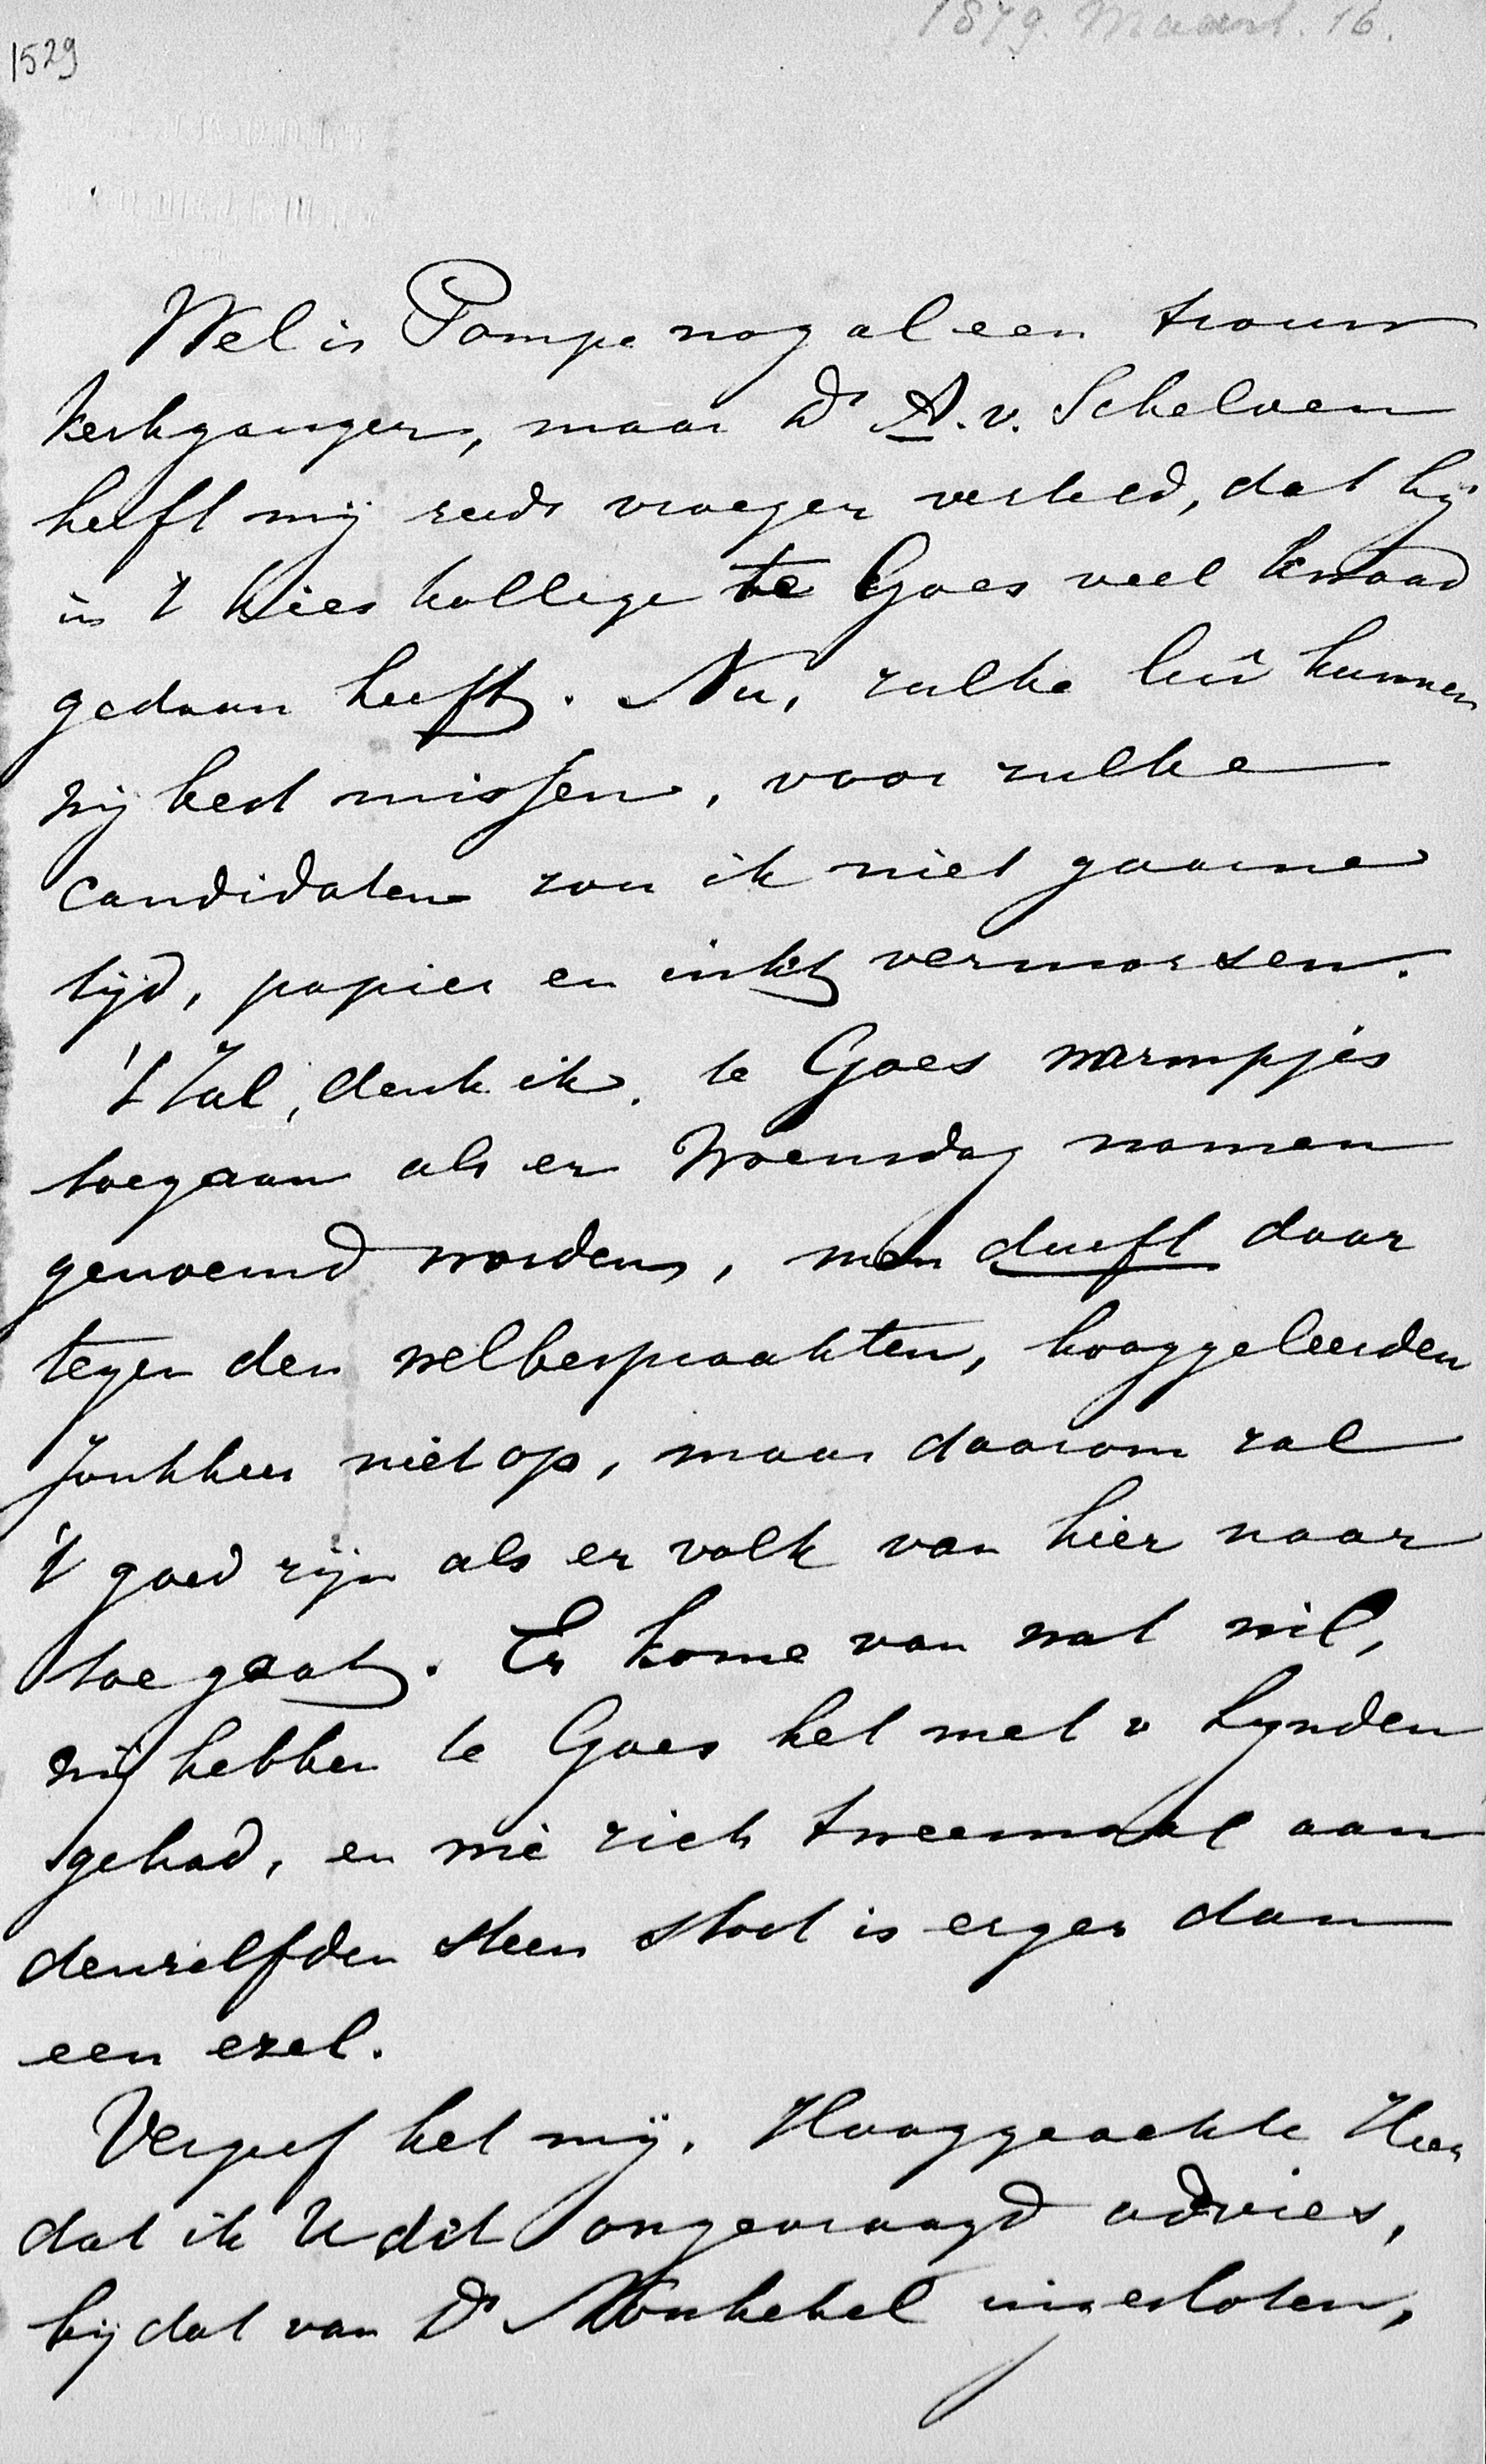 1879. Maart. 16.
1529
Wel is Pompe nog al een trouw
kerkganger, maar Ds A. v. Schelven
heeft mij reeds vroeger verteld, dat hij
in 't kies kollege te Goes veel kwaad
gedaan heeft. Nu, zulke luî kunnen
wij best missen, voor zulke
candidaten zou ik niet gaarne
tijd, papier en inkt vermorsen.
't Zal, denk ik, te Goes warmpjes
toegaan als er Woensdag namen
genoemd worden, men durft daar
tegen den welbespraakten, hooggeleerden
Jonkheer niet op, maar daarom zal
't goed zijn als er volk van hier naar
toe gaat. Er kome van wat wil,
wij hebben te Goes het met v Lynden
gehad, en wie zich tweemaal aan
denzelfden steen stoot is erger dan
een ezel.
Vergeef het mij, Hooggeachte Heer
dat ik U dit ongevraagd advies,
bij dat van Ds Wonhebel ingesloten,